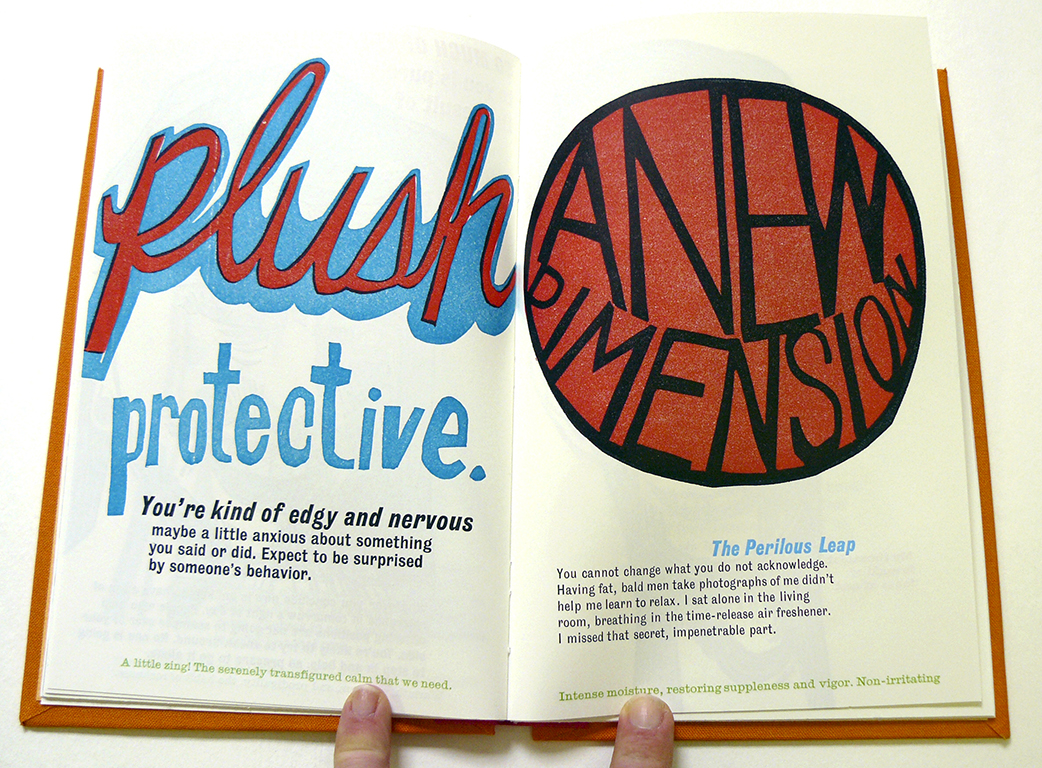 plush
protective.
You're kind of edgy and nervous
maybe a little anxious about something
you said or did. Expect to be surprised
by someone's behavior.
A little zing! The serenely transfigured calm that we need.
A NEW
DIMENSION
The Perilous Leap
You cannot change what you do not acknowledge.
Having fat, bald men take photographs of me didn't
help me learn to relax. I sat alone in the living
room, breathing in the time-release air freshener.
I missed that secret, impenetrable part.
Intense moisture, restoring suppleness and vigor. Non-irritating